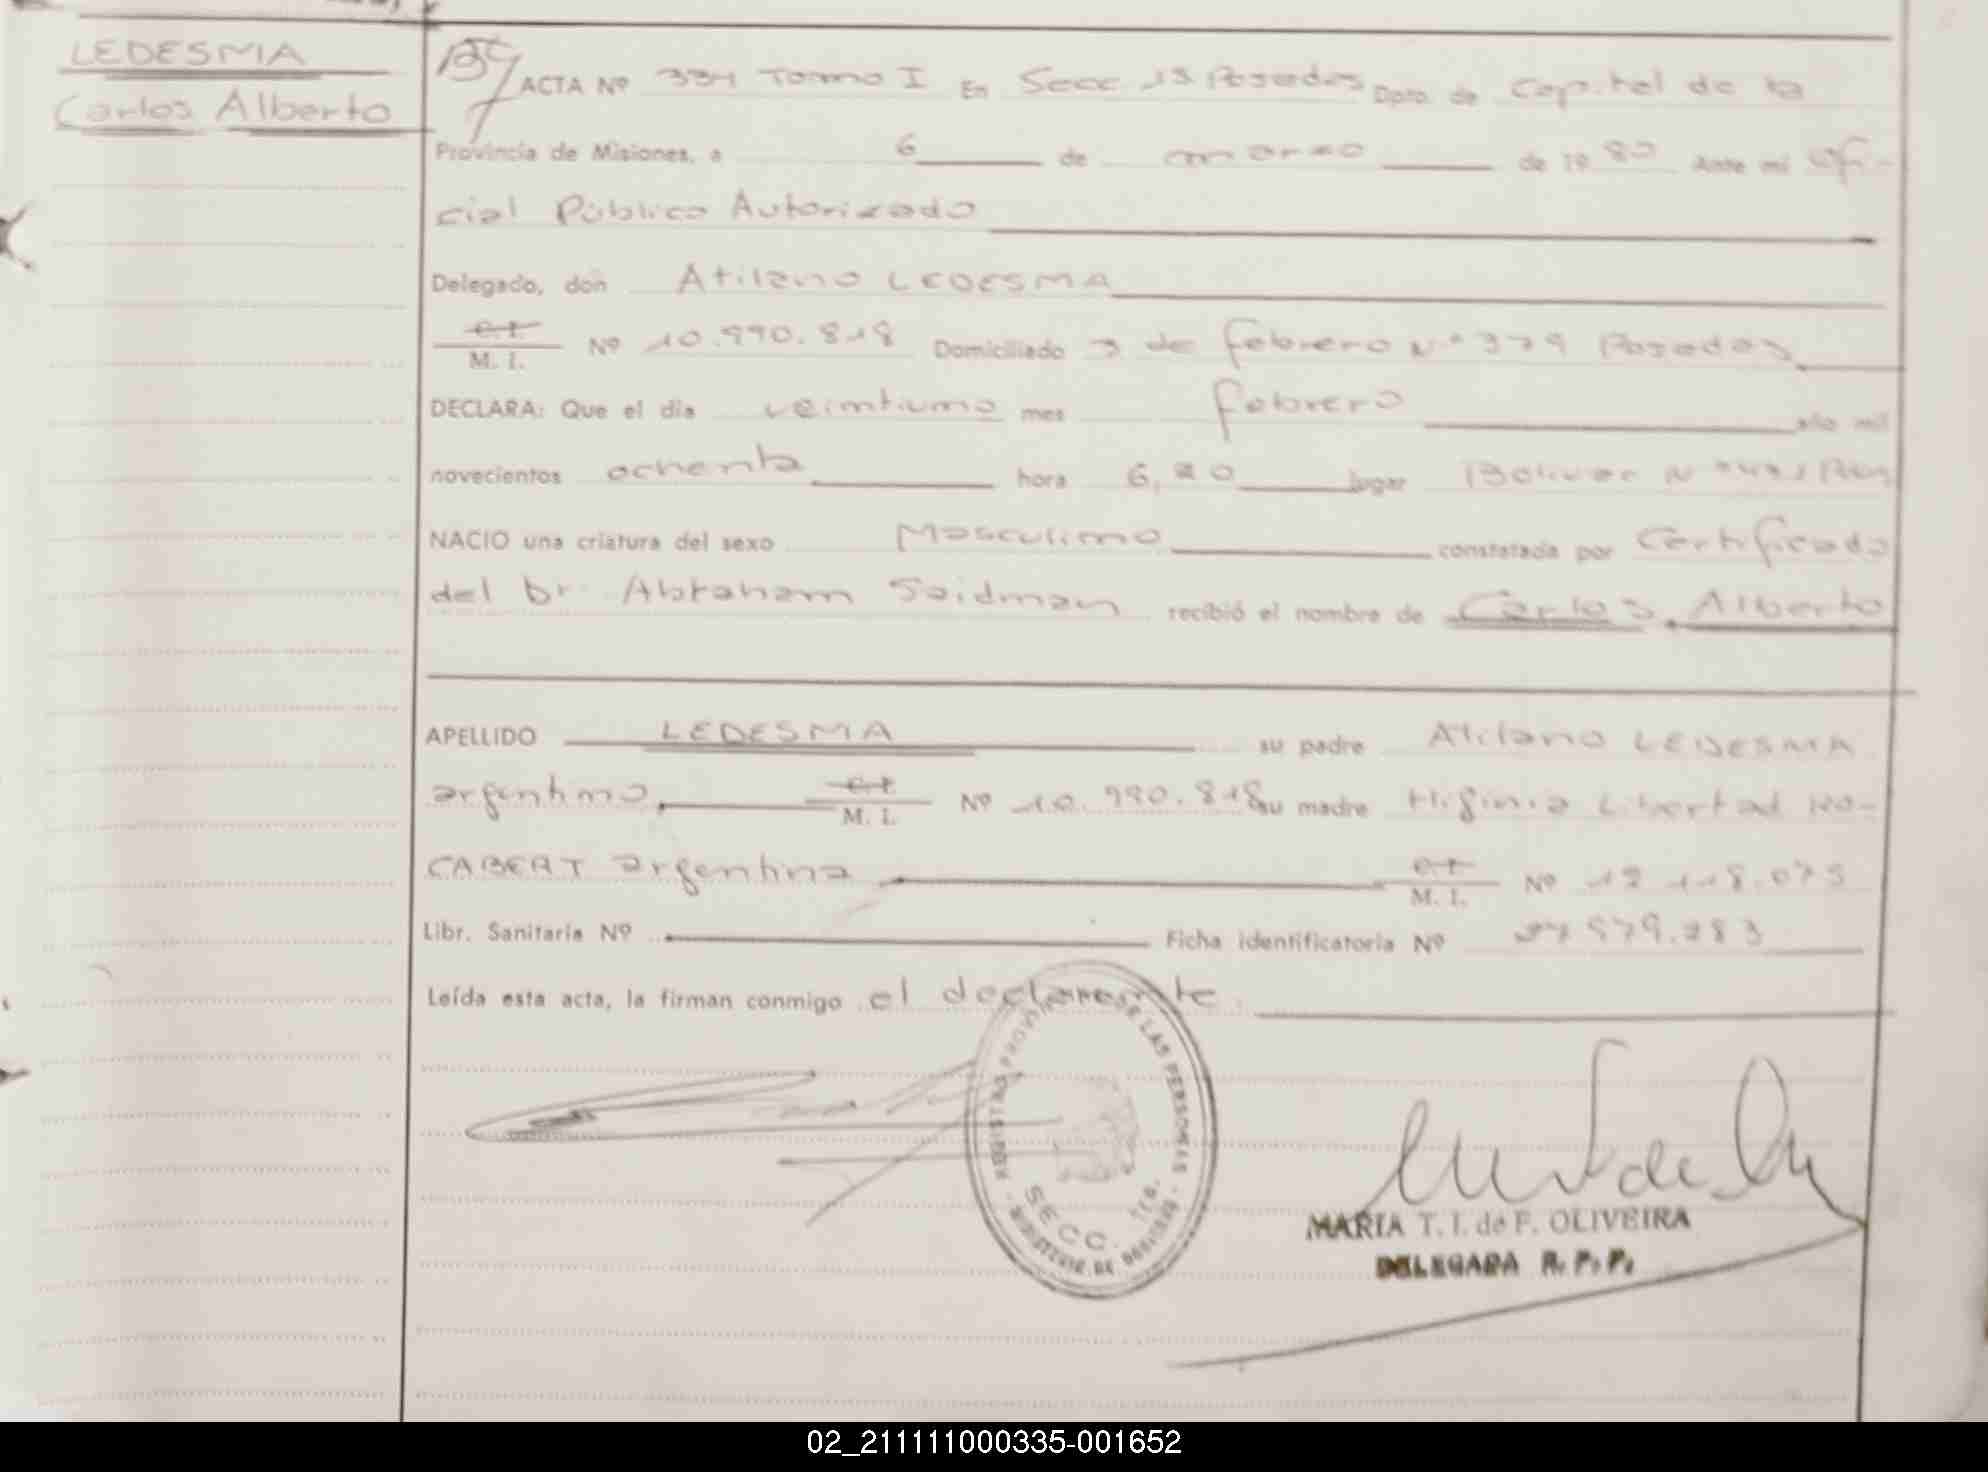 LEDESMA
Carlos Alberto
ACTA Nº 334 Tomo I En Secc 1ª Posadas Dpto. de Capital de la
Provincia de Misiones, a 6 de marzo de 1980 Ante mí Ofi-
cial Público Autorizado
Delegado, don Atilano LEDESMA
C. I.
M. I. Nº 10.990.818 Domiciliado 3 de febrero Nº 379 Posadas
DECLARA: Que el día veintiuno mes febrero año mil
novecientos ochenta hora 6, lugar Bolivar Nº
NACIO una criatura del sexo Masculino constatada por Certificado
del Dr. Abraham Saidman recibió el nombre de Carlos Alberto
APELLIDO LEDESMA su padre Atilano LEDESMA
argentino, M. I. Nº 10.990.818 su madre Higinia Libertad RO-
CABERT argentina M. I. Nº 12.118.075
Libr. Sanitaria Nº Ficha identificatoria Nº 27.979.283
Leída esta acta, la firman conmigo el declarante.
REGISTRO PROVINCIAL DE LAS PERSONAS
SECC. 1ra.
MINISTERIO DE GOBIERNO
MARIA T. I. de F. OLIVEIRA
DELEGADA R. P. P.
02_211111000335-001652